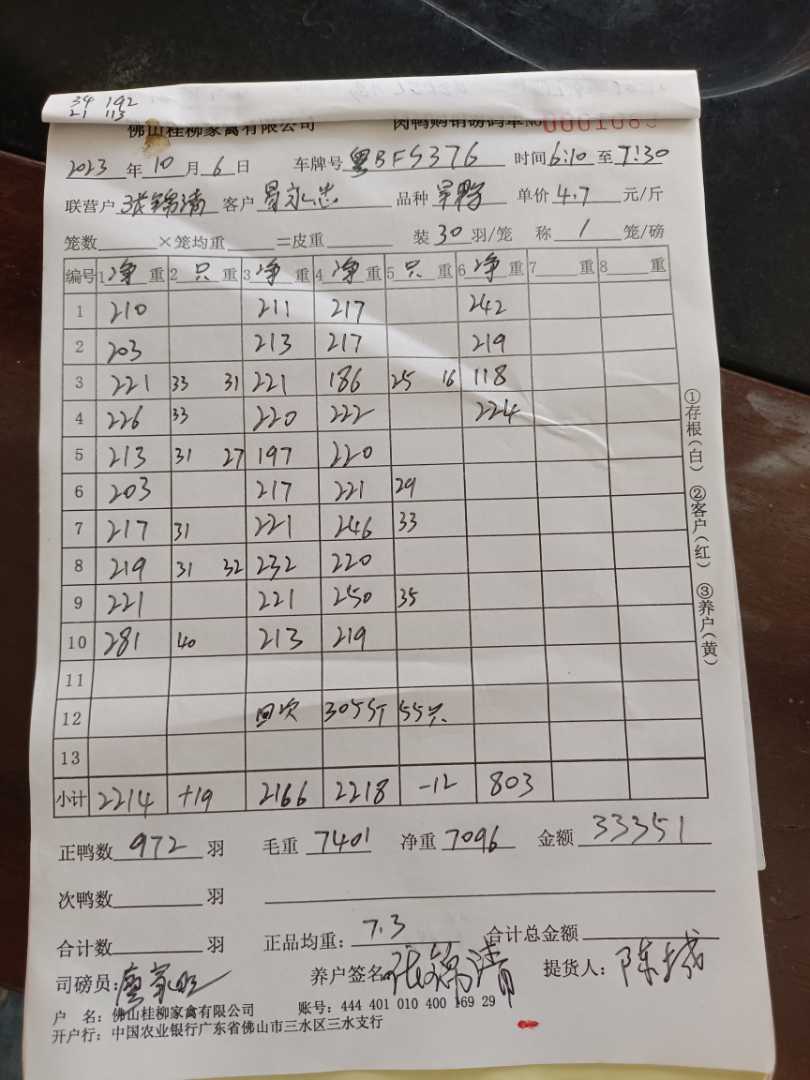 34 192
21 113
佛山桂柳家禽有限公司 肉鸭购销磅码单No
2023 年 10 月 6 日 车牌号 粤BF5376 时间 6:10 至 7:30
联营户 张锦清 客户 永志 品种 单价 4.7 元/斤
笼数 ×笼均重 =皮重 装 30 羽/笼 称 1 笼/磅
编号 1 净 重 2 只 重 3 净 重 4 净 重 5 只 重 6 净 重 7 重 8 重
1 210 211 217 242
2 203 213 217 219
3 221 33 31 221 186 25 16 118
4 226 33 220 222 224
5 213 31 27 197 220
6 203 217 221 29
7 217 31 221 246 33
8 219 31 32 232 220
9 221 221 250 35
10 281 40 213 219
11
12 回次 305斤 55只
13
小计 2214 +19 2166 2218 -12 803
正鸭数 972 羽 毛重 7401 净重 7096 金额 33351
次鸭数 羽
合计数 羽 正品均重: 7.3 合计总金额
司磅员: 廖家旺 养户签名 张锦清 提货人: 陈
户 名: 佛山桂柳家禽有限公司 账号: 444 401 010 400 169 29
开户行: 中国农业银行广东省佛山市三水区三水支行
①存根(白) ②客户(红) ③养户(黄)